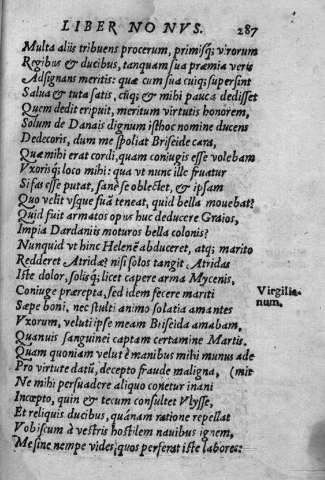 LIBER NONVS. 287
Multa aliis tribuens procerum, primisq; virorum
Regibus & ducibus, tanquam sua præmia veris
Adsignans meritis: quæ cum sua cuiq; supersint
Salua & tuta satis, cũq; & mihi pauca dedisset
Quem dedit eripuit, meritum virtutis honorem,
Solum de Danais dignum isthoc nomine ducens
Dedecoris, dum me spoliat Briseide cara,
Quæ mihi erat cordi, quam coniugis esse volebam
Vxorisq; loco mihi: qua vt nunc ille fruatur
Si fas esse putat, sanè se oblectet, & ipsam
Quo velit vsque suâ teneat, quid bella mouebat?
Quid fuit armatos opus huc deducere Graios,
Impia Dardaniis moturos bella colonis?
Nunquid vt hinc Helenẽ abduceret, atq; marito
Redderet Atridæ? nisi solos tangit Atridas
Iste dolor, solisq; licet capere arma Mycenis,
Coniuge prærepta, sed idem fecere mariti
Virgilia-
num.
Sæpe boni, nec stulti animo solatia amantes
Vxorum, veluti ipse meam Briseida amabam,
Quamuis sanguinei captam certamine Martis.
Quam quoniam velut è manibus mihi munus ade-
Pro virtute datũ, decepto fraude maligna, (mit
Ne mihi persuadere aliquo conetur inani
Incœpto, quin & tecum consultet Vlysse,
Et reliquis ducibus, quánam ratione repellat
Vobiscum à vestris hostilem nauibus ignem,
Me sine nempe vides, quos perferat iste labores: